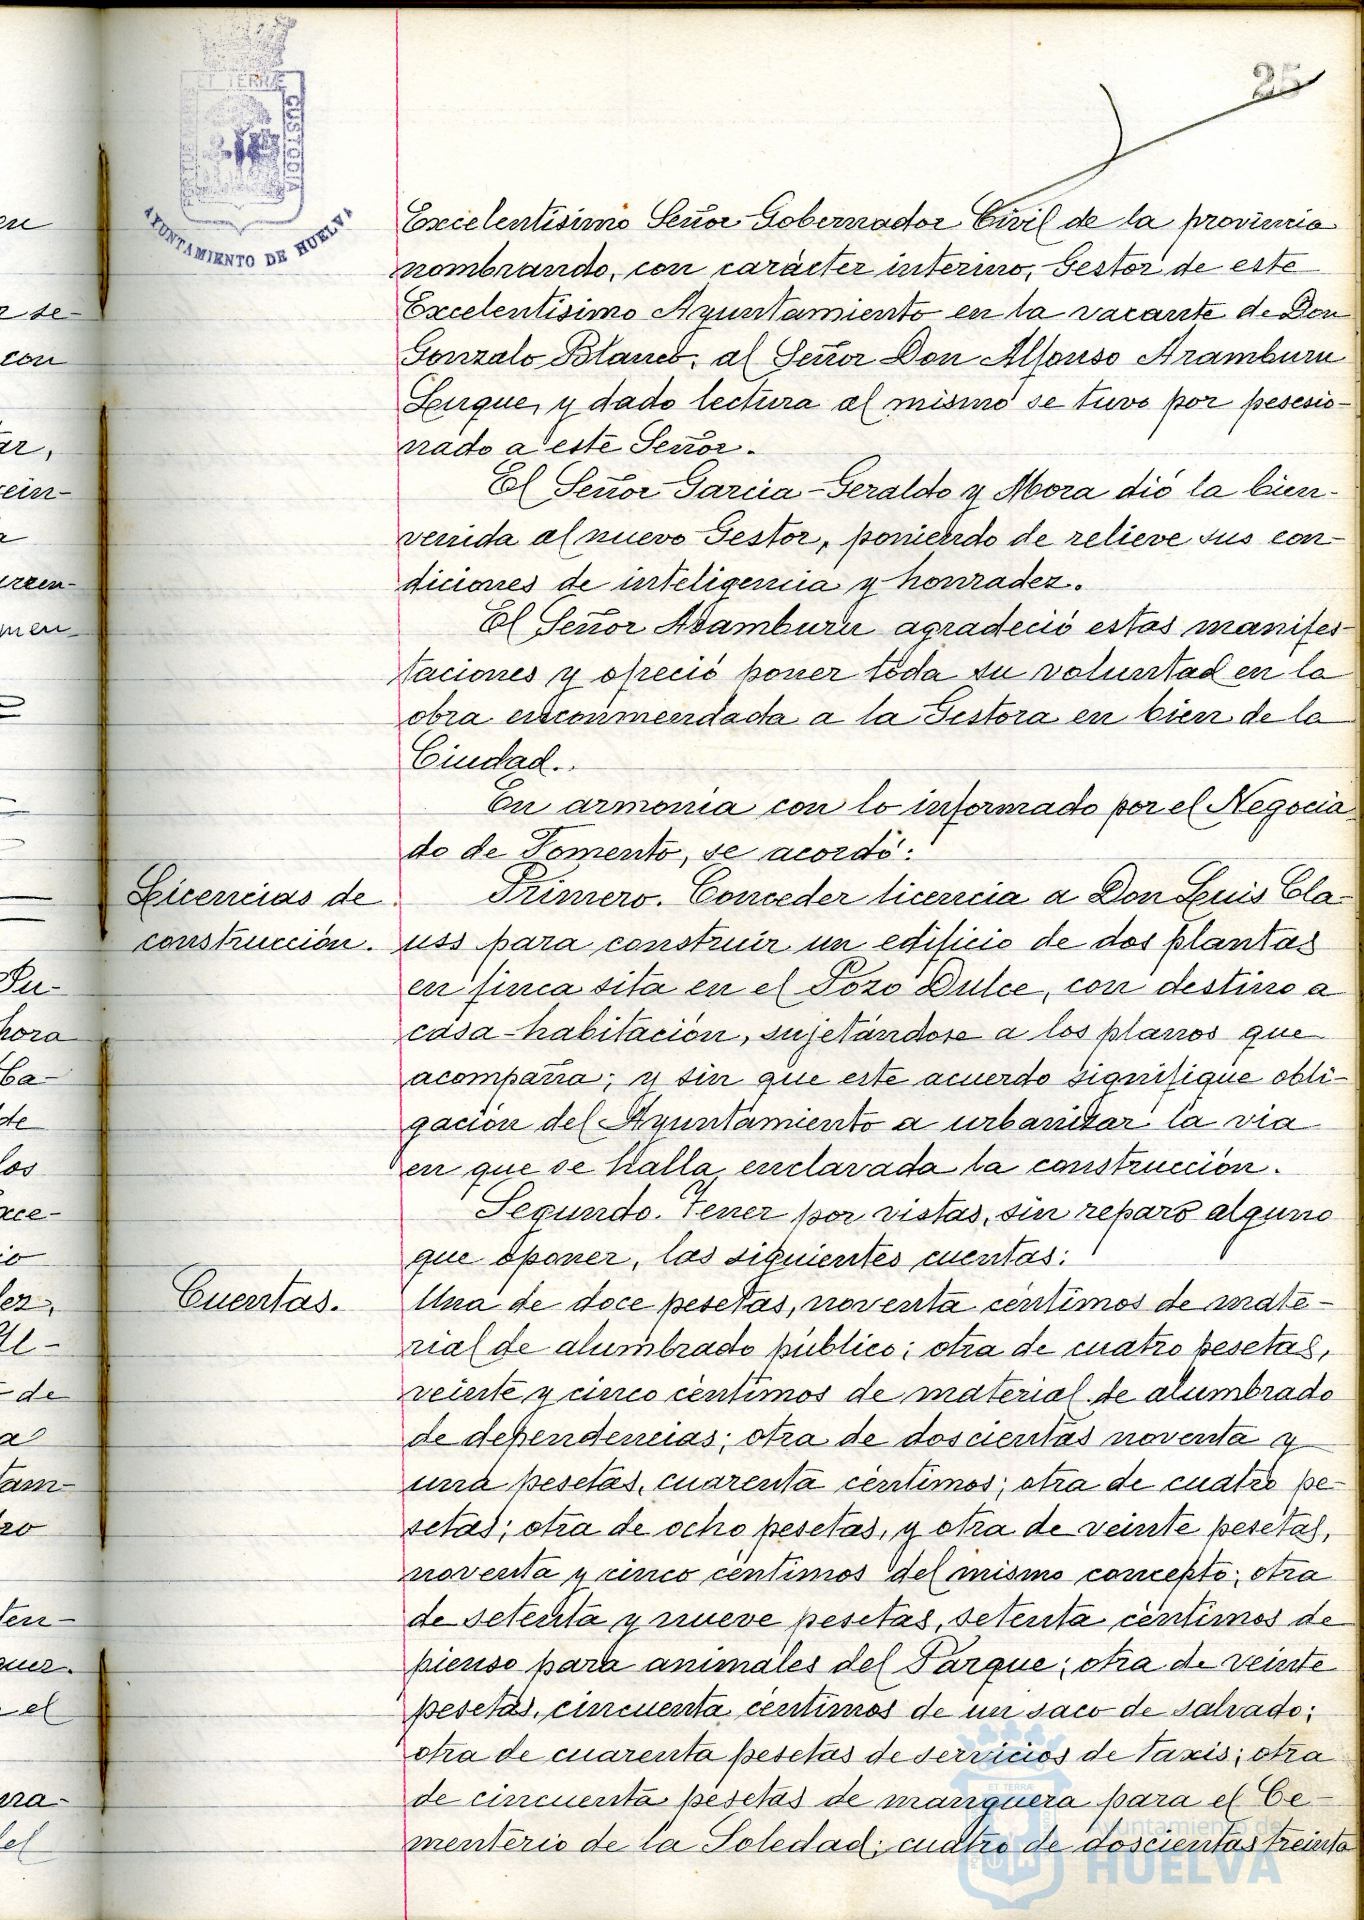 25
PORTUS MARIS
ET TERRÆ
CUSTODIA
AYUNTAMIENTO DE HUELVA
Excelentisimo Señor Gobernador Civil de la provincia
nombrando, con carácter interino, Gestor de este
Excelentisimo Ayuntamiento en la vacante de Don
Gonzalo Blanco, al Señor Don Alfonso Aramburu
Luque, y dado lectura al mismo se tuvo por pesesio-
nado a este Señor.
El Señor Garcia-Geraldo y Mora dió la bien-
venida al nuevo Gestor, poniendo de relieve sus con-
diciones de inteligencia y honradez.
El Señor Aramburu agradeció estas manifes-
taciones y ofreció poner toda su voluntad en la
obra enconmendada a la Gestora en bien de la
Ciudad.
En armonia con lo informado por el Negocia-
do de Fomento, se acordó:
Licencias de
construcción.
Primero. Conceder licencia a Don Luis Cla-
uss para construir un edificio de dos plantas
en finca sita en el Pozo Dulce, con destino a
casa-habitación, sujetándose a los planos que
acompaña; y sin que este acuerdo signifique obli-
gación del Ayuntamiento a urbanizar la via
en que se halla enclavada la construcción.
Segundo. Tener por vistas, sin reparo alguno
que oponer, las siguientes cuentas:
Cuentas.
Una de doce pesetas, noventa céntimos de mate-
rial de alumbrado público; otra de cuatro pesetas,
veinte y cinco céntimos de material de alumbrado
de dependencias; otra de doscientas noventa y
una pesetas, cuarenta céntimos; otra de cuatro pe-
setas; otra de ocho pesetas, y otra de veinte pesetas,
noventa y cinco céntimos del mismo concepto; otra
de setenta y nueve pesetas, setenta céntimos de
pienso para animales del Parque; otra de veinte
pesetas, cincuenta céntimos de un saco de salvado;
otra de cuarenta pesetas de servicios de taxis; otra
de cincuenta pesetas de manguera para el Ce-
menterio de la Soledad; cuatro de doscientas treinta
ET TERRÆ
Ayuntamiento de
HUELVA